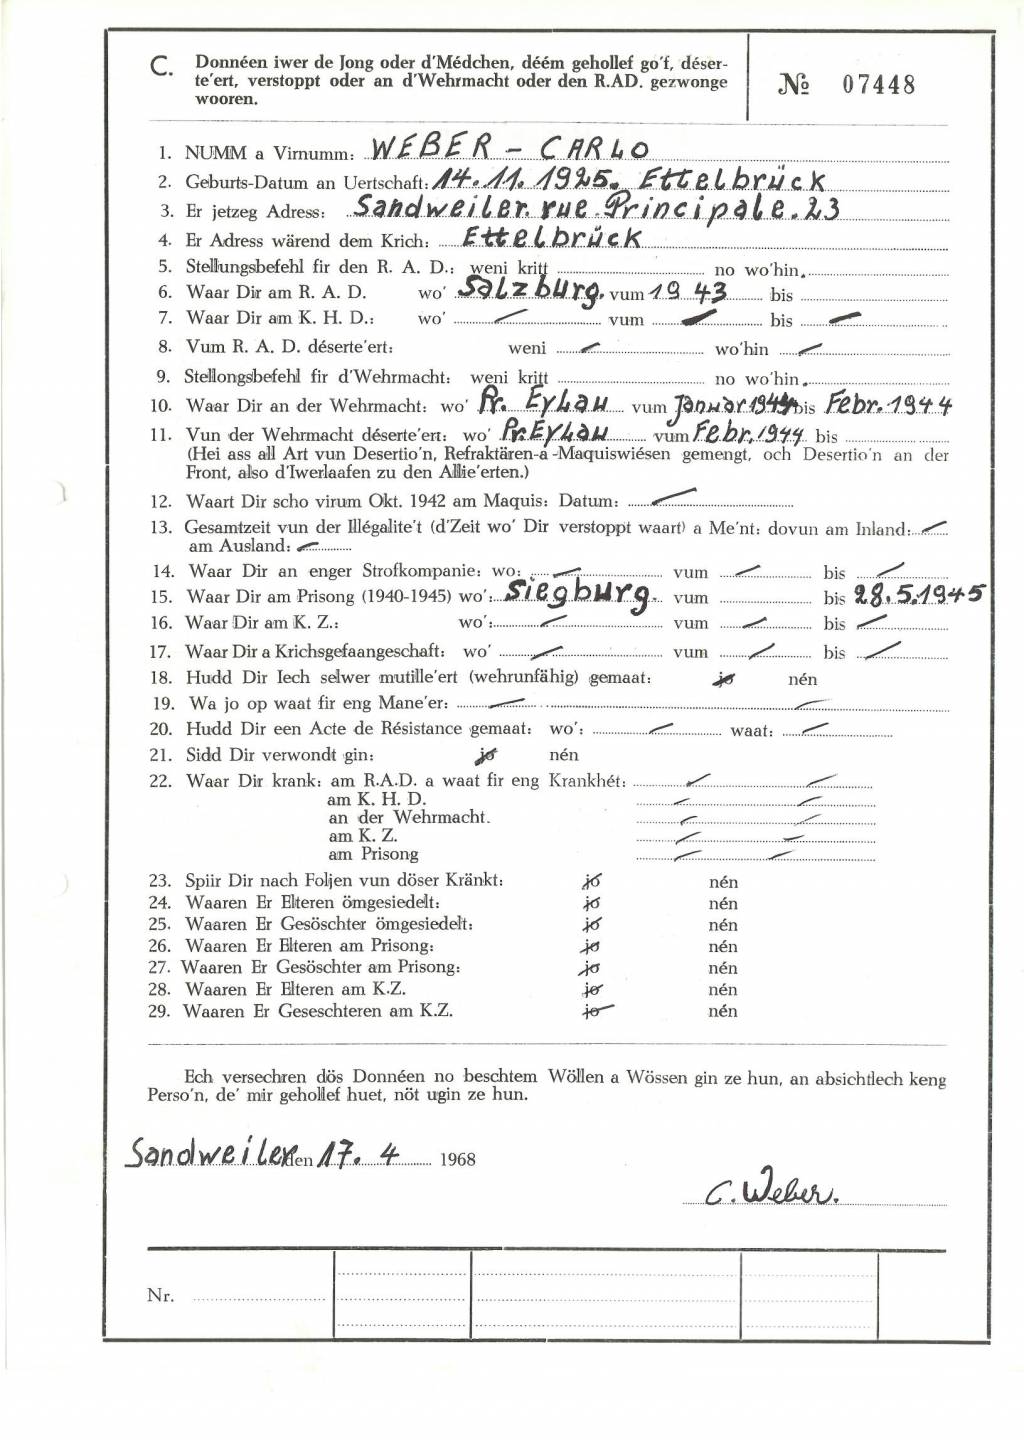 C. Donnéen iwer de Jong oder d'Médchen, déém gehollef go'f, déser-
te'ert, verstoppt oder an d'Wehrmacht oder den R.AD. gezwonge
wooren.
№ 07448
1. NUMM a Virnumm: WEBER - CARLO
2. Geburts-Datum an Uertschaft: 14.11.1925. Ettelbrück
3. Er jetzeg Adress: Sandweiler. rue Principale. 23
4. Er Adress wärend dem Krich: Ettelbrück
5. Stellungsbefehl fir den R. A. D.: weni kritt no wo'hin.
6. Waar Dir am R. A. D. wo' Salzburg. vum 1943 bis
7. Waar Dir am K. H. D.: wo' vum bis
8. Vum R. A. D. déserte'ert: weni wo'hin
9. Stellongsbefehl fir d'Wehrmacht: weni kritt no wo'hin.
10. Waar Dir an der Wehrmacht: wo' Pr. Eylau vum Januar 1944 bis Febr. 1944
11. Vun der Wehrmacht déserte'ert: wo' Pr. Eylau vum Febr. 1944 bis
(Hei ass all Art vun Desertio'n, Refraktären-a -Maquiswiésen gemengt, och Desertio'n an der
Front, also d'Iwerlaafen zu den Allie'erten.)
12. Waart Dir scho virum Okt. 1942 am Maquis: Datum:
13. Gesamtzeit vun der Illégalite't (d'Zeit wo' Dir verstoppt waart) a Me'nt: dovun am Inland:
am Ausland:
14. Waar Dir an enger Strofkompanie: wo: vum bis
15. Waar Dir am Prisong (1940-1945) wo': Siegburg. vum bis 28.5.1945
16. Waar Dir am K. Z.: wo': vum bis
17. Waar Dir a Krichsgefaangeschaft: wo' vum bis
18. Hudd Dir Iech selwer mutille'ert (wehrunfähig) gemaat: jo nén
19. Wa jo op waat fir eng Mane'er:
20. Hudd Dir een Acte de Résistance gemaat: wo': waat:
21. Sidd Dir verwondt gin: jo nén
22. Waar Dir krank: am R.A.D. a waat fir eng Krankhét:
am K. H. D.
an der Wehrmacht.
am K. Z.
am Prisong
23. Spiir Dir nach Foljen vun döser Kränkt: jo nén
24. Waaren Er Elteren ömgesiedelt: jo nén
25. Waaren Er Gesöschter ömgesiedelt: jo nén
26. Waaren Er Elteren am Prisong: jo nén
27. Waaren Er Gesöschter am Prisong: jo nén
28. Waaren Er Elteren am K.Z. jo nén
29. Waaren Er Geseschteren am K.Z. jo nén
Ech versechren dös Donnéen no beschtem Wöllen a Wössen gin ze hun, an absichtlech keng
Perso'n, de' mir gehollef huet, nöt ugin ze hun.
Sandweiler den 17. 4 1968
C. Weber.
Nr.